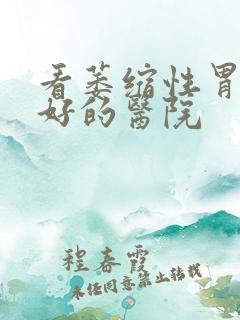 看萎缩性胃
好的醫院
程春霞
未经同意禁止转载